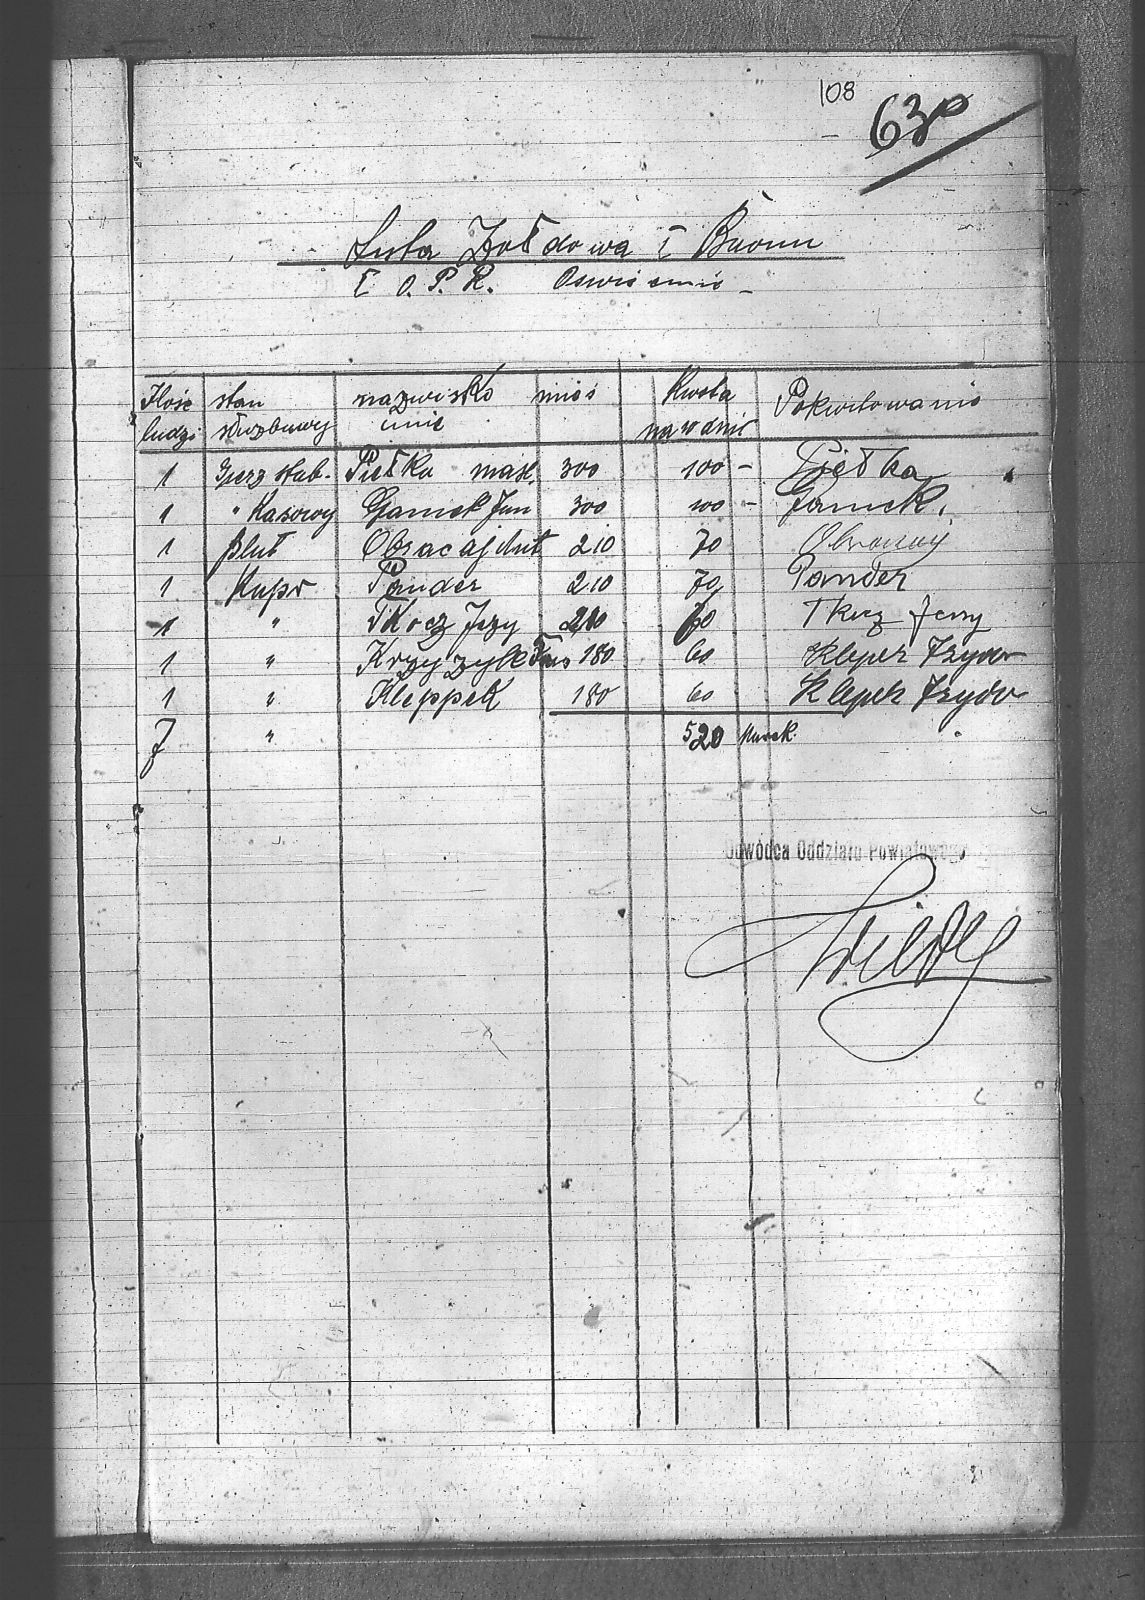 108
63
Lista Żołdowa I Baonu
I O.P.R. Oswiecmie -
Ilośc ludzi stan służbowy nazwisko imie mies Kwota na dnie Pokwitowanie
1 Pietka mak. 300 100 - Pietka
1 " Kasowy Gamck Jan 300 100 - Jamck.
1 plut Obracaj 210 70
1 Kapr Pander 210 70 Pander
1 " Tkocz Jezy 210 70 Tkocz Jerzy
1 " Krzyżyk 180 60 Klepek Izydor
1 " Kleppek 180 60 Klepek Izydor
7 " 520 Marek
Dowódca Oddziału Powiatowego